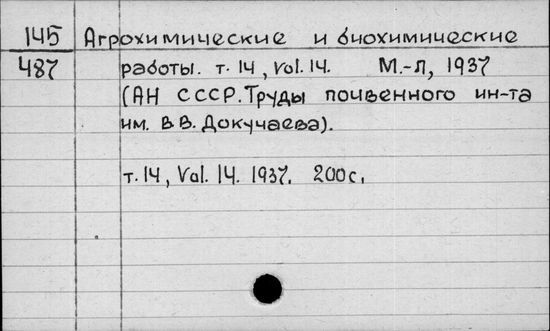 145 Агрохимические и биохимические
487 работы. т. 14, Vol. 14. М.-Л, 1937
(АН СССР. Труды почвенного ин-та
им. В.В. Докучаева).
т. 14, Vol. 14. 1937. 200с.